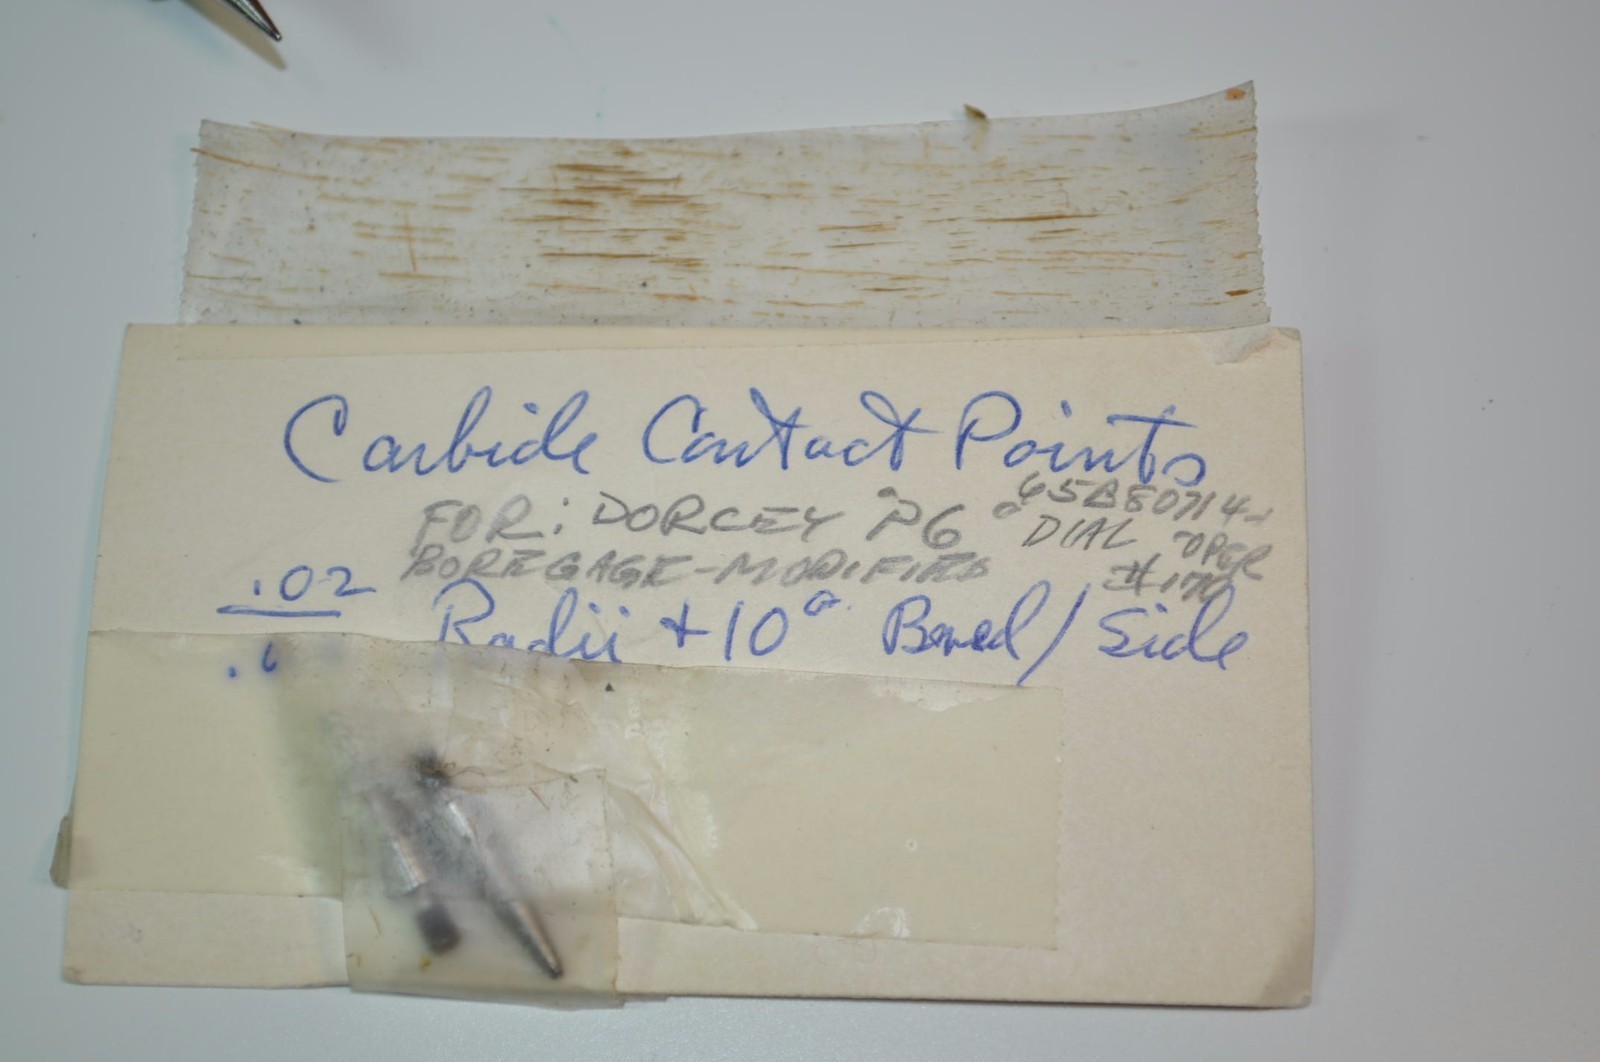 Carbide Contact Points
FOR: DORCEY P6 65B80714-
DIAL OPER
BOREGAGE-MODIFIED #170
.02 Radii + 10° Beved/Side